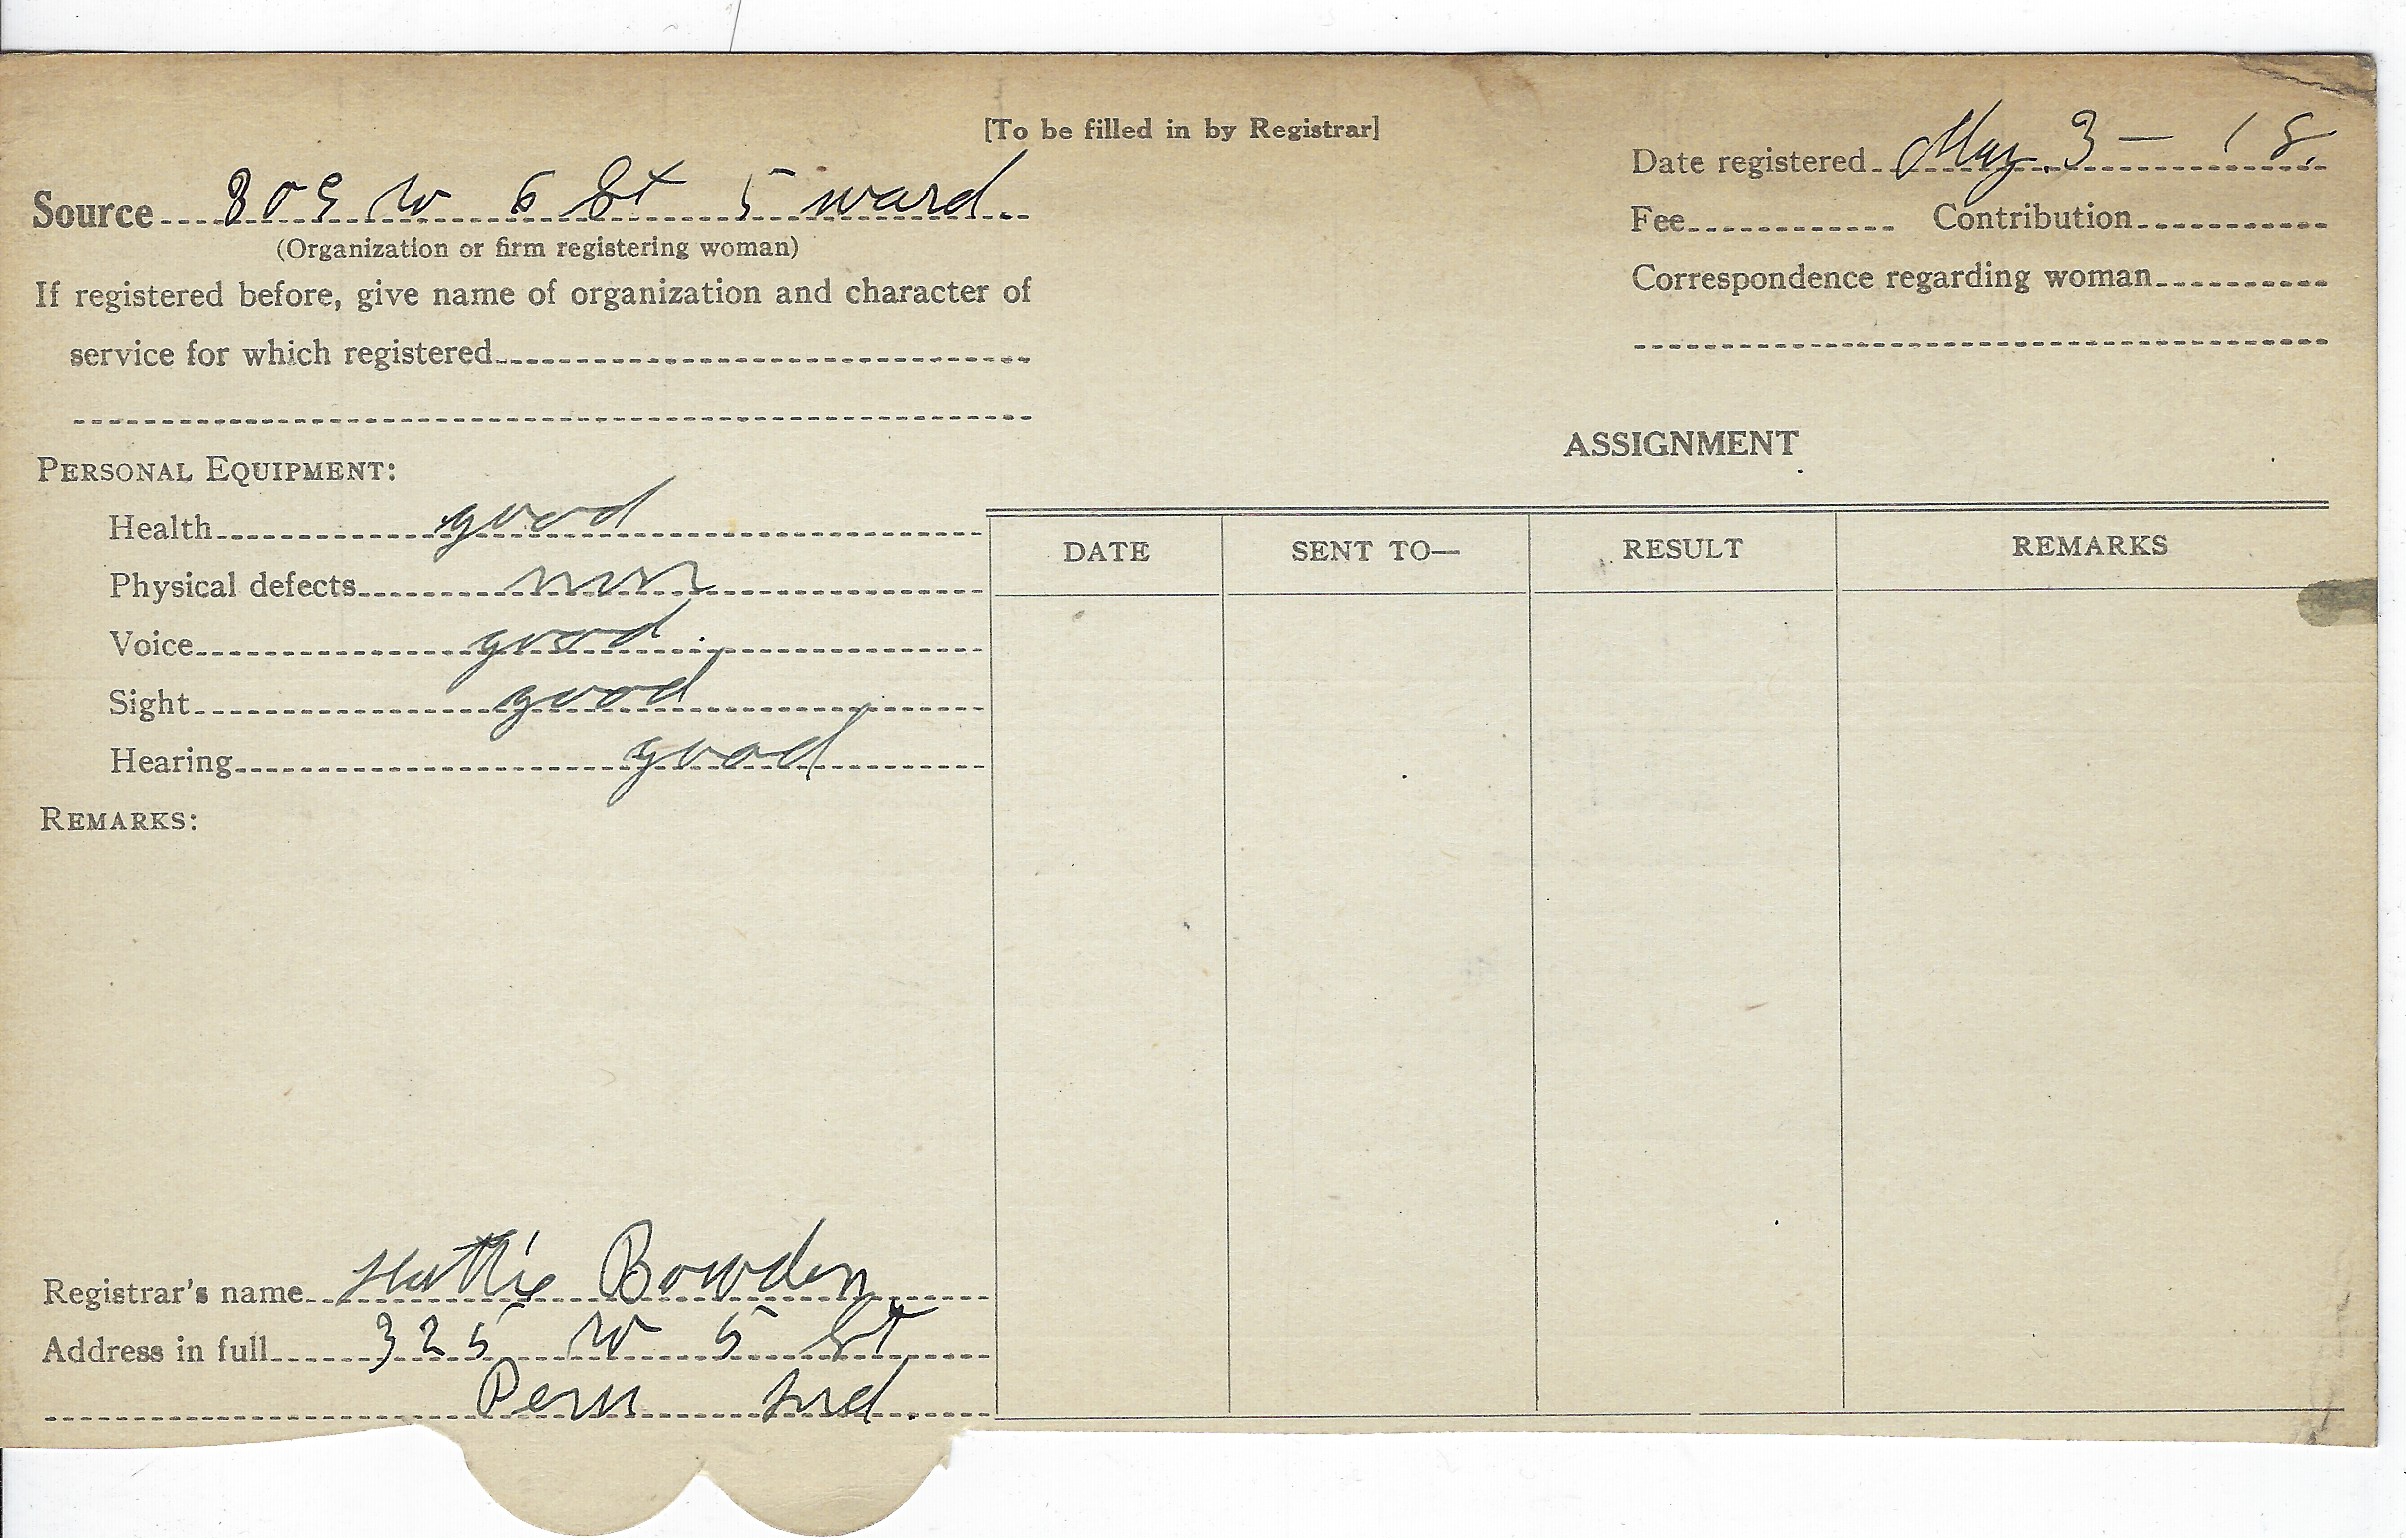 [To be filled in by Registrar]
Date registered May 3 — 18.
Source 309 W 6 St 5 ward
(Organization or firm registering woman)
Fee Contribution
If registered before, give name of organization and character of
service for which registered
Correspondence regarding woman
ASSIGNMENT
PERSONAL EQUIPMENT:
Health good
Physical defects non
Voice good
Sight good
Hearing good
DATE SENT TO— RESULT REMARKS
REMARKS:
Registrar's name Hattie Bowden
Address in full 325 W 5 St
Peru Ind.